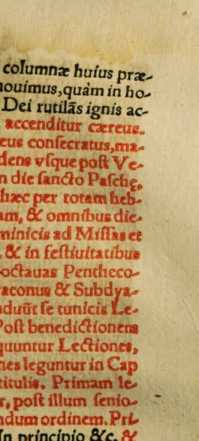 columnæ huius præ-
nouimus, quàm in ho-
Dei rutilãs ignis ac-
accenditur cæreus.
eus consecratus, ma-
dens vsque post Ve-
n die sancto Pasche,
hæc per totam heb-
am, & omnibus die-
minicis ad Missas et
, & in festiuitatibus
octauas Pentheco-
aconus & Subdya-
duũt se tunicis Le-
Post benedictionem
quuntur Lectiones,
nes leguntur in Cap
titulis. Primam le-
r, post illum senio-
ndum ordinem. Pri-
In principio &c. &